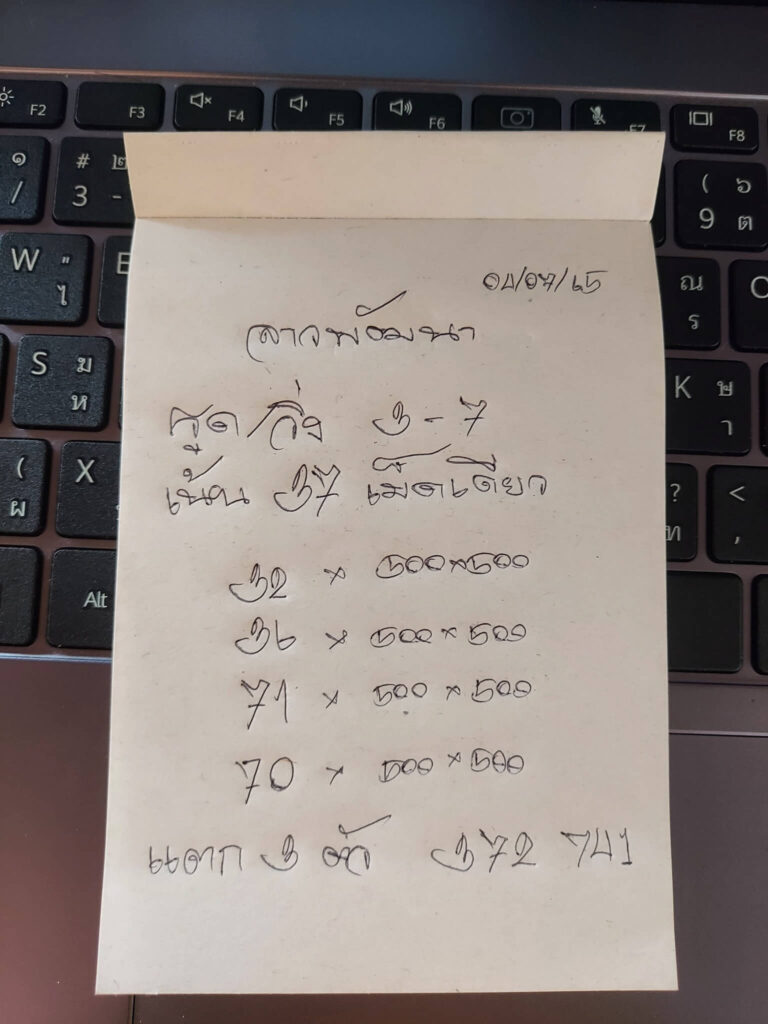 F2 F3 F4 F5 F6 F7 F8
๑ / # ๒ 3 - ( ๖ 9 ต
W " ไ E ณ ร O
S ฆ ห K ษ า
( ผ X ? ท < ,
Alt
04/07/65
ลาวพัฒนา
รูด/วิ่ง 3-7
เน้น 37 เม็ดเดียว
32 × 500×500
36 × 500×500
71 × 500×500
70 × 500×500
แตก 3 ตัว 372 741